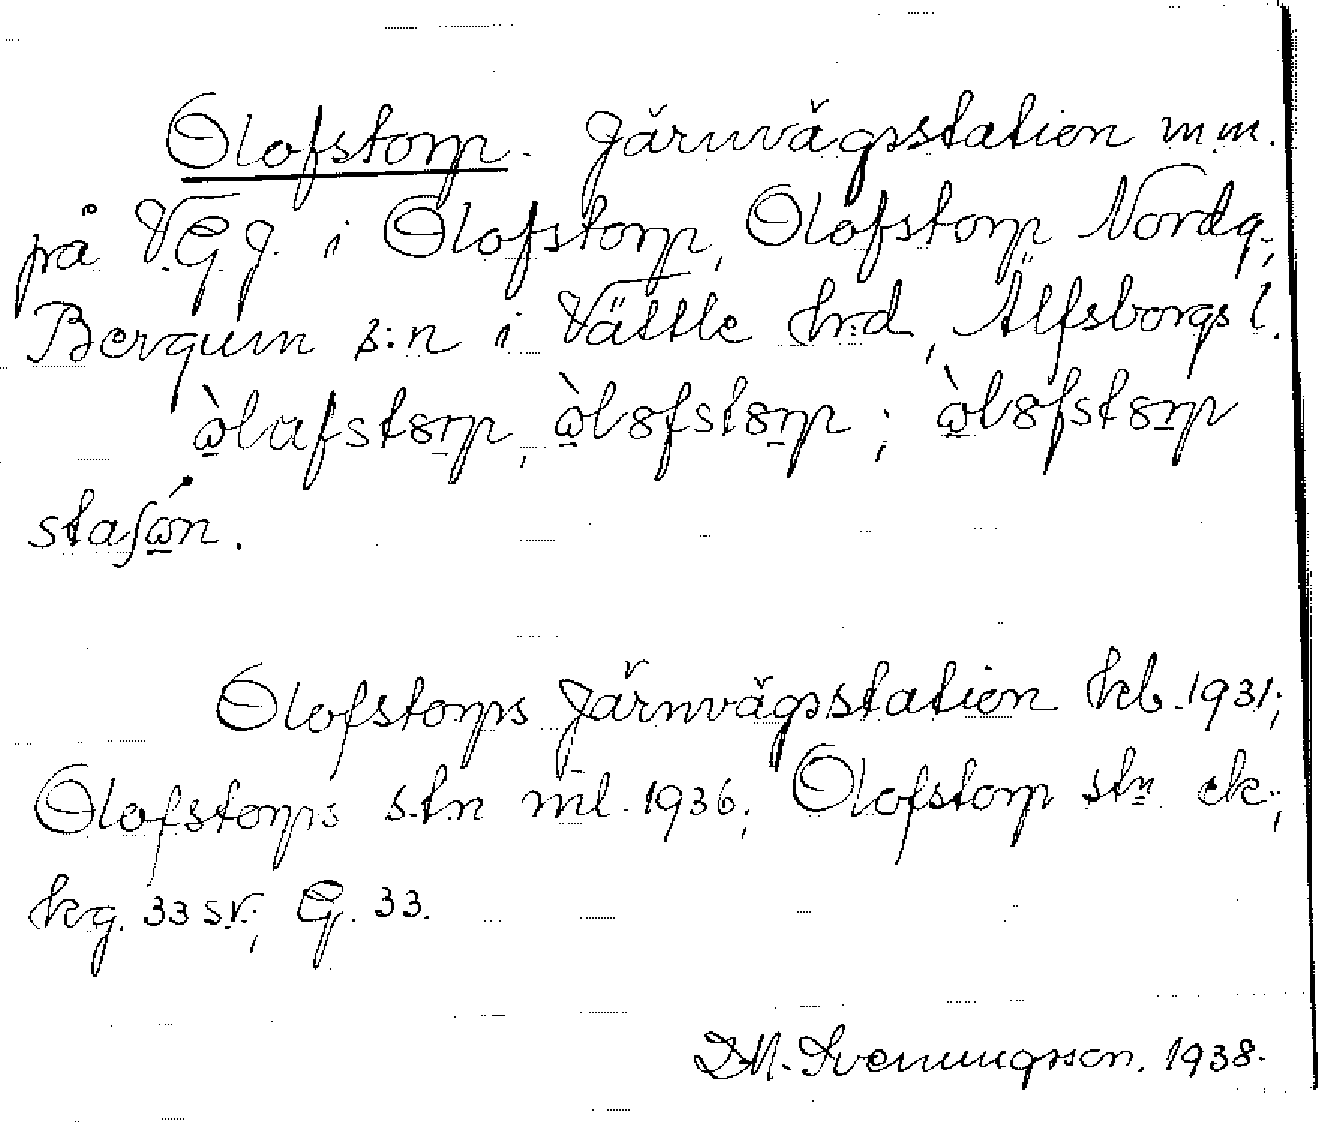 Olofstorp. Järnvägsstation m.m.
på V.G.J. i Olofstorp, Olofstorp Nordg.,
Bergum s:n i Vättle hrd, Älfsborgs l.
ὼlafstɷrp, ὼlɷfstɷrp; ὼlɷfstɷrp
staʃώn.
Olofstorps Järnvägsstation hkb. 1931;
Olofstorps st:n ml. 1936; Olofstorp stn ek;
hkg. 33 sv.; G. 33.
Svenungsson. 1938.